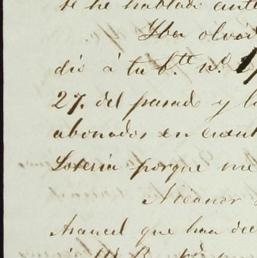 se he hablado ante
Iba olvid
dio á tu
27. del pasado y l
abonados en cuent
Loteria porque me
Nicanor
Arancel que han de